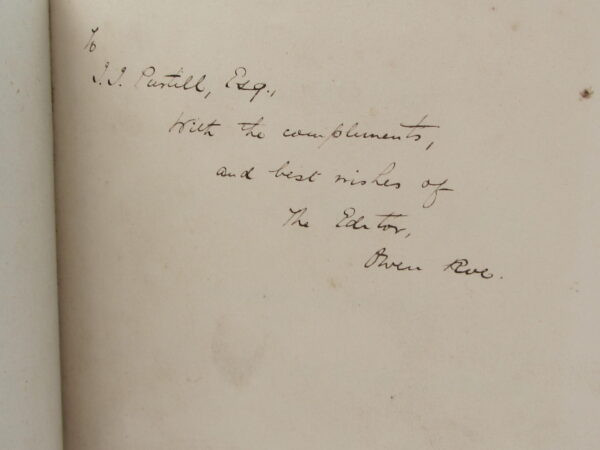 To
J. J. Purtill, Esq.,
With the compliments,
and best wishes of
The Editor,
Owen Roe.